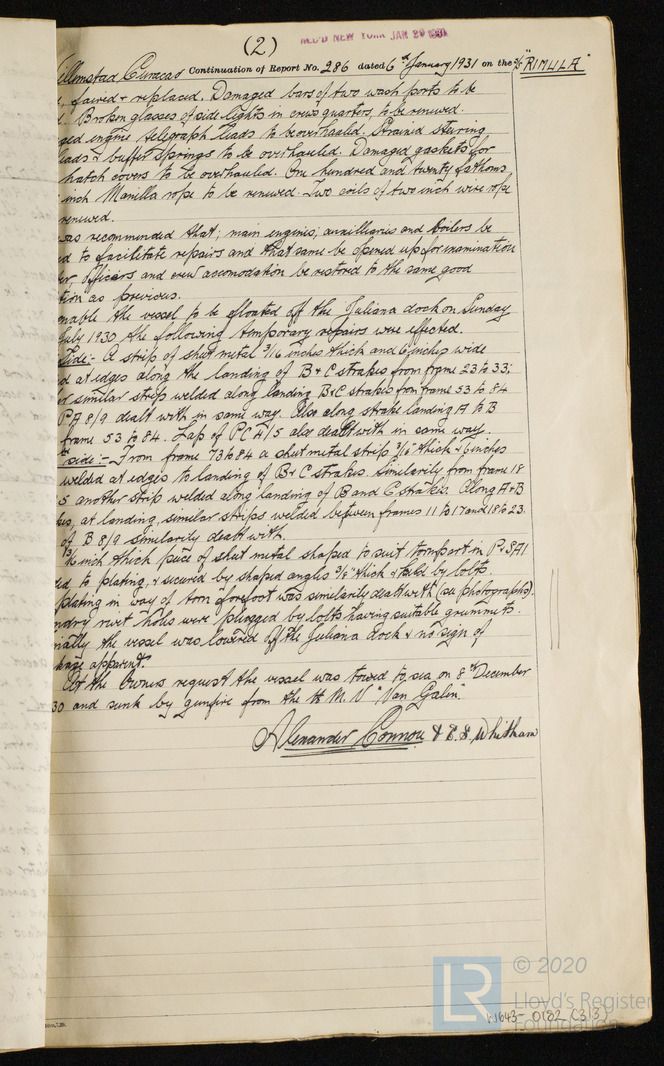 (2)
REC'D NEW YORK JAN 29 1931
Willmstad Curacao Continuation of Report No. 286 dated 6th January 1931 on the S/S "RIMULA"
faired & replaced. Damaged bars of two wash ports to be
Broken glasses of side lights in crews quarters, to be renewed.
ged engine telegraph leads to be overhauled. Strained steering
leads & buffer springs to be overhauled. Damaged gaskets for
hatch covers to be overhauled. One hundred and twenty fathoms
inch Manilla rope to be renewed. Two coils of two inch wire rope
renewed.
was recommended that; main engines; auxilliaries and boilers be
ed to facilitate repairs and that same be opened up for examination
er, officers and crew accomodation be restored to the same good
tion as previous.
enable the vessel to be floated off the Juliana dock on Sunday
July 1930 the following temporary repairs were effected.
Side:- A strip of sheet metal 3/16 inches thick and 6 inches wide
ed at edges along the landing of B & C strakes from frame 23 to 33;
er similar strip welded along landing B & C strakes from frame 53 to 84
P A 8/9 dealt with in same way. Also along strake landing A to B
frame 53 to 84. Lap of P C 4/5 also dealt with in same way.
side:- From frame 73 to 84 a sheet metal strip 3/16" thick & 6 inches
welded at edges to landing of B & C strakes. Similarily from frame 18
5 another strip welded along landing of B and C strakes. Along A & B
kes, at landing, similar strips welded between frames 11 to 17 and 18 to 23.
of B 8/9 similarily dealt with.
inch thick piece of sheet metal shaped to suit torn part in P & S A1
ed to plating & secured by shaped angles 3/8" thick & held by bolts.
plating in way of torn forefoot was similarily dealt with (see photographs).
ndry rivet holes were plugged by bolts having suitable grummets.
nally the vessel was lowered off the Juliana dock & no sign of
kage apparent.
At the Owners request the vessel was towed to sea on 8th December
30 and sunk by gunfire from the H. M. V "Van Galen".
Alexander Connon & E. S. Whitham
© 2020
LR Lloyd's Register
Foundation
W643-0182 (3/3)